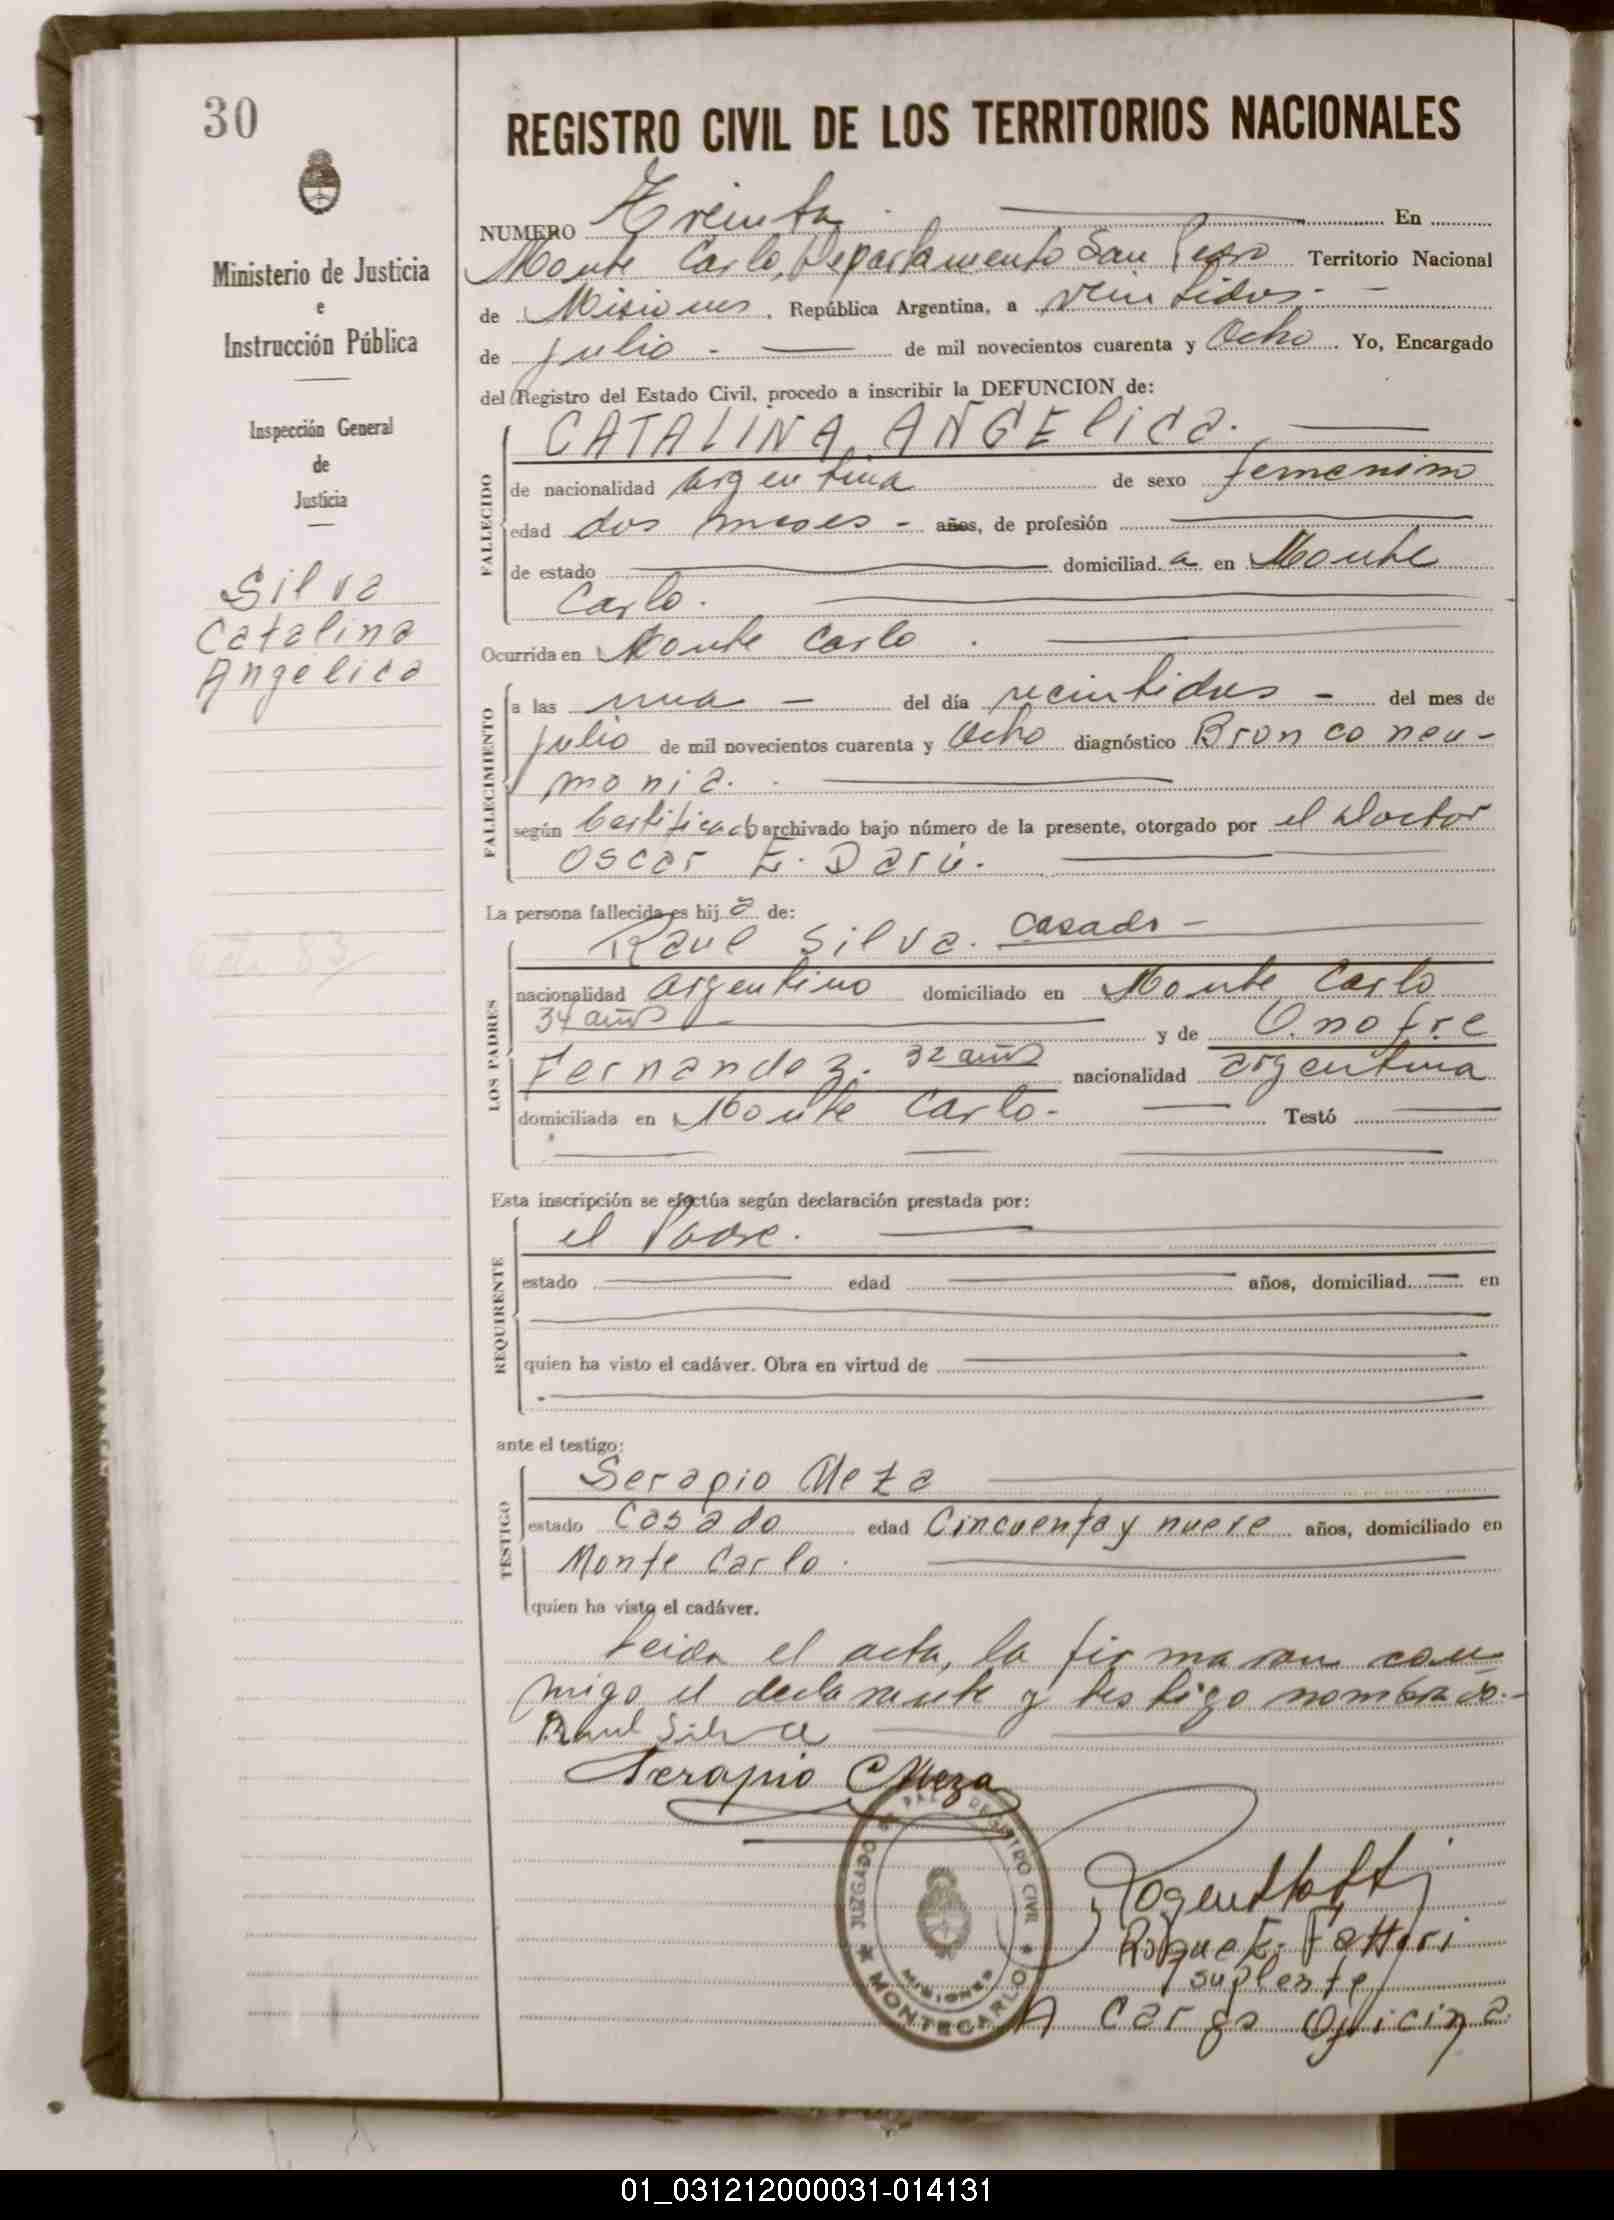 30
REGISTRO CIVIL DE LOS TERRITORIOS NACIONALES
Ministerio de Justicia
e
Instrucción Pública
Inspección General
de
Justicia
Silva
Catalina
Angélica
NUMERO Treinta En
Monte Carlo, Departamento San Pedro Territorio Nacional
de Misiones, República Argentina, a veintidos
de julio de mil novecientos cuarenta y Ocho. Yo, Encargado
del Registro del Estado Civil, procedo a inscribir la DEFUNCION de:
FALLECIDO
CATALINA ANGElica.
de nacionalidad argentina de sexo femenino
edad dos meses - años, de profesión
de estado domiciliad a en Monte
Carlo.
Ocurrida en Monte Carlo.
FALLECIMIENTO
a las una - del día veintidos - del mes de
julio de mil novecientos cuarenta y Ocho diagnóstico Bronconeu-
monia.
según Certificado archivado bajo número de la presente, otorgado por el Doctor
Oscar E. Darú.
La persona fallecida es hij a de:
LOS PADRES
Raul Silva. casado -
nacionalidad argentino domiciliado en Monte Carlo
34 años y de Onofre
Fernandez. 32 años nacionalidad argentina
domiciliada en Monte Carlo. Testó
Esta inscripción se efectúa según declaración prestada por:
REQUIRENTE
el Padre.
estado edad años, domiciliad en
quien ha visto el cadáver. Obra en virtud de
ante el testigo:
TESTIGO
Serapio Meza
estado Casado edad Cincuenta y nueve años, domiciliado en
Monte Carlo.
quien ha visto el cadáver.
Leida el acta, la firmaron con-
migo el declarante y testigo nombrado.-
Raul Silva
Serapio Meza
JUZGADO DE PAZ Y REGISTRO CIVIL
MISIONES
MONTECARLO
Roque E. Fattori
suplente
A cargo Oficina.
01_031212000031-014131